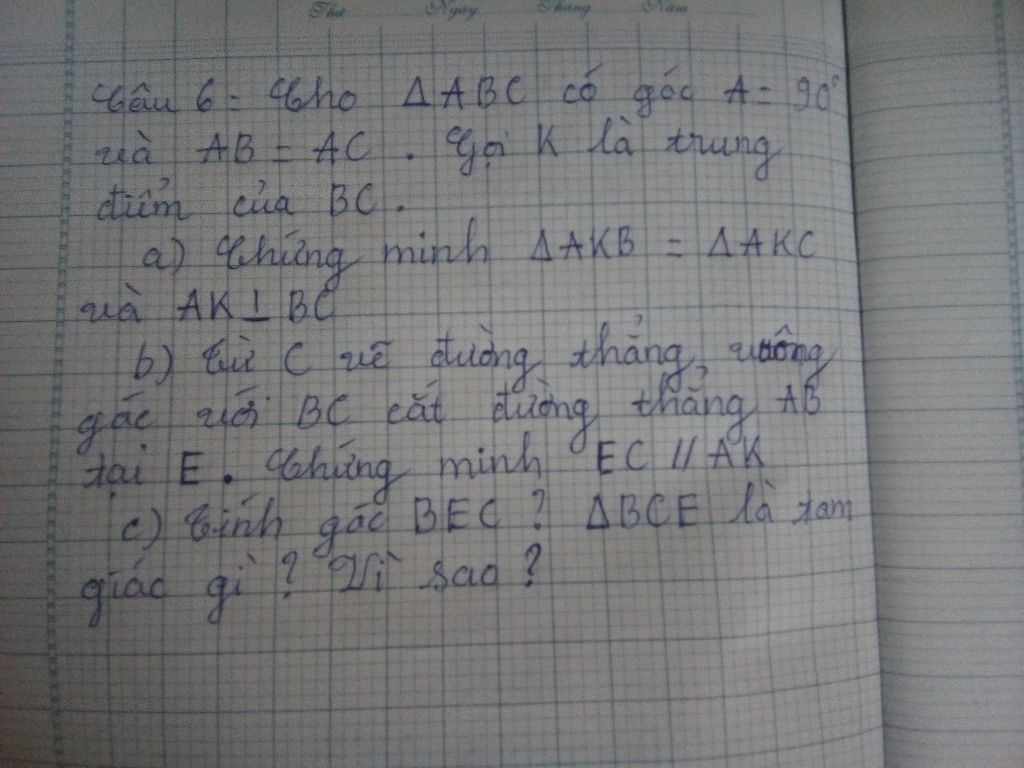 Thứ Ngày Tháng Năm
Câu 6 = Cho ΔABC có góc A = 90°
và AB = AC . Gọi K là trung
điểm của BC .
a) Chứng minh ΔAKB = ΔAKC
và AK ⊥ BC
b) Từ C vẽ đường thẳng vuông
góc với BC cắt đường thẳng AB
tại E . Chứng minh EC // AK
c) Tính góc BEC ? ΔBCE là tam
giác gì ? Vì sao ?